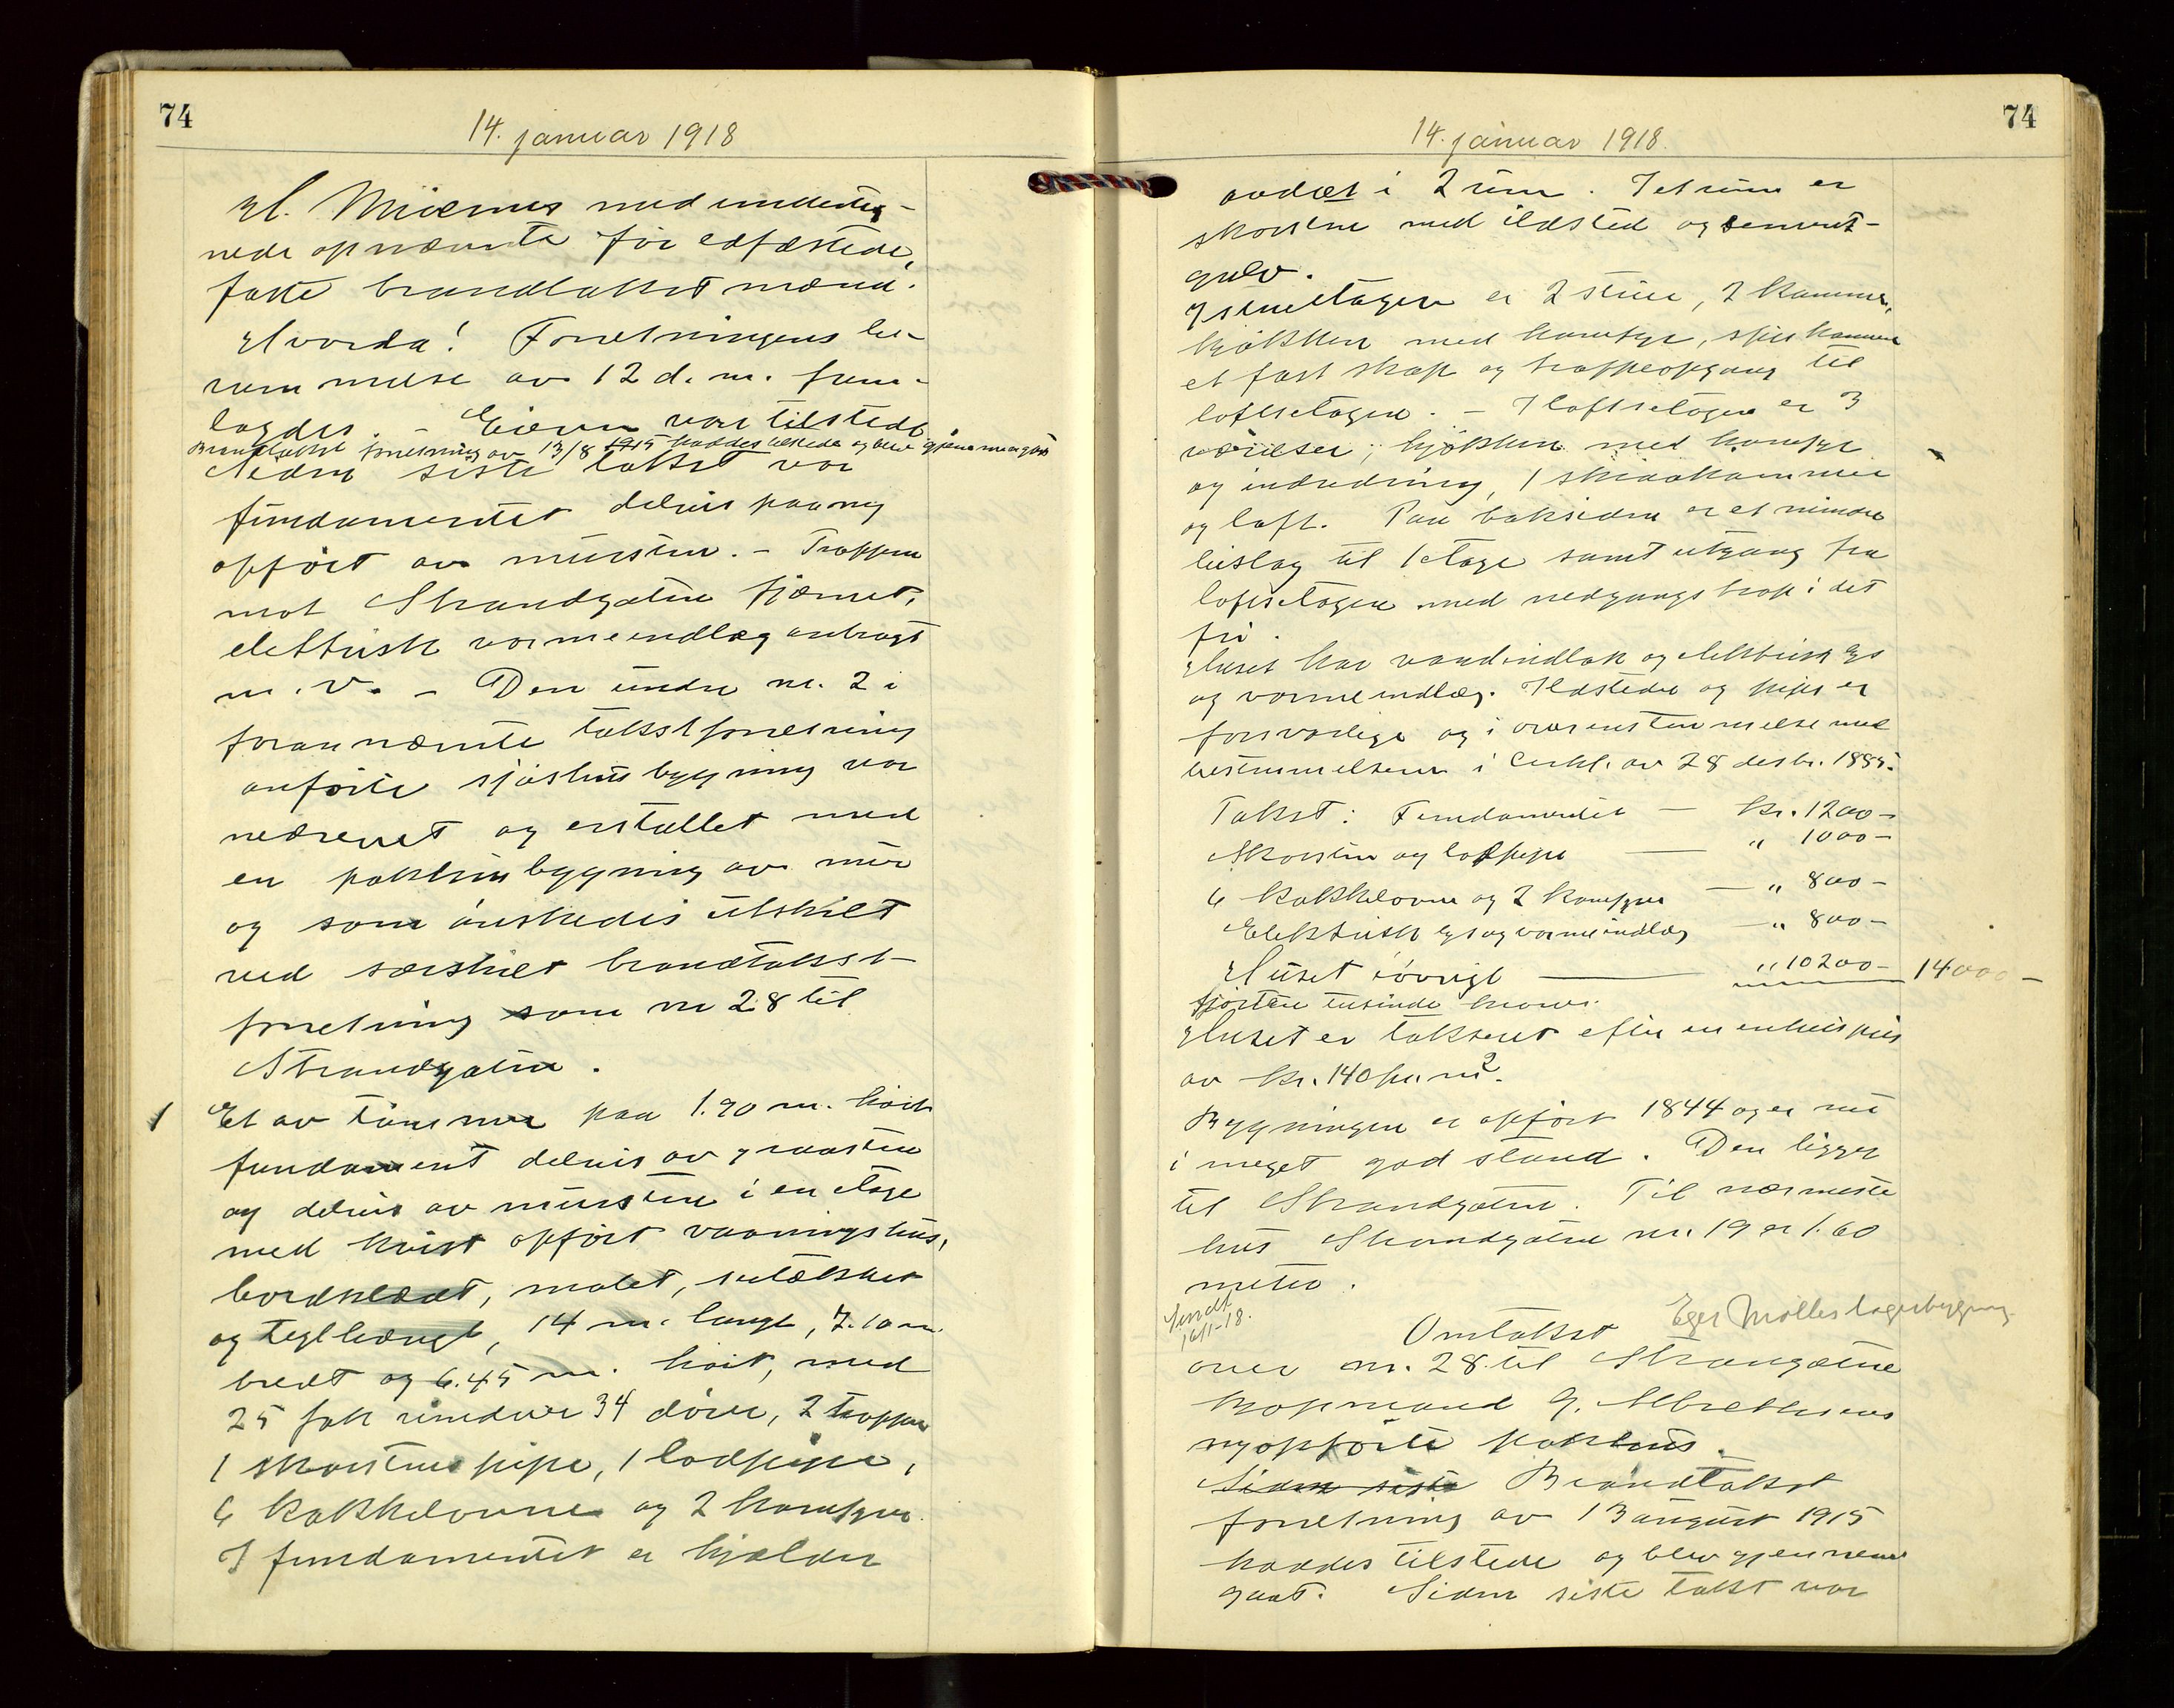 74
14. januar 1918
hl. Miienes med underteg-
nede opnævnte før edfæstede,
faste brandtakstmænd.
Hvorda! Forretningens be-
rammelse av 12 d. m. frem-
lagdes. – Eieren var tilstede
Brandtakst forretning av 13/8 1915 haddes tilstede og blev gjennemgaat
Siden siste takst var
fundamentet delvis paany
opført av mursten. – Trappen
mot Strandgaten fjernet,
elektrisk varmeindlæg anbragt
m. v. – Den under nr. 2 i
forannævnte takstforretning
anførte sjøhusbygning var
nedrevet og erstattet med
en pakhusbygning av mur
og som ønskedes utskilt
ved særskilt brandtakst-
forretning som nr 28 til
Strandgaten.
1 Et av tømmer paa 1.90 m. høit
fundament delvis av graasten
og delvis av mursten i en etage
med kvist opført vaaningshus,
bordklædt, malet,
og teglhængt, 14 m. langt, 7.10 m.
bredt og 6.45 m. høit, med
25 fak vinduer 34 døre, 2 trapper
1 skorstenspipe, 1 lodpipe,
6 kakkelovne og 2 komfyrer.
I fundamentet er kjælder
74
14. januar 1918.
avdelt i 2 rum. I et rum er
skorsten med ildsted og cement-
gulv.
I stueetagen er 2 stuer, 2 kammer,
kjøkken med komfyr, spiskammer
et fast skap og trappeopgang til
loftsetagen. – I loftsetagen er 3
værelser, kjøkken med komfyr
og indredning, 1 skraakammer
og loft. Paa baksiden er et mindre
bislag til 1 etage samt utgang fra
loftsetagen med nedgangstrap i det
fri.
Huset har vandindlæk og elektrisk lys
og varmeindlæg. Ildsteder og piper er
forsvarlige og i overensstemmelse med
bestemmelserne i Cirkl. av 28 desbr. 1885.
Takst: Fundamentet — kr. 1200 –
Skorsten og lodpipe — " 1000 –
6 kakkelovne og 2 komfyrer — " 800 –
Elektrisk lys og varmeindlæg — " 800 –
Huset iøvrigt — " 10200 – 14000 –
fjorten tusinde kroner.
Huset er takseret efter en enhetspris
av kr. 140 per m².
Bygningen er opført 1844 og er nu
i meget god stand. Den ligger
til Strandgaten. Til nærmeste
hus Strandgaten nr. 19 er 1.60
meter.
Sendt
16/1-18.
Omtakst Eger Mølles lagerbygning
over nr. 28 til Strangatene
kjøpmand G. Albrethsens
nyopførte pakhus.
Siden siste Brandtakst
forretning av 13 august 1915
haddes tilstede og blev gjennem
gaat. Siden siste takst var